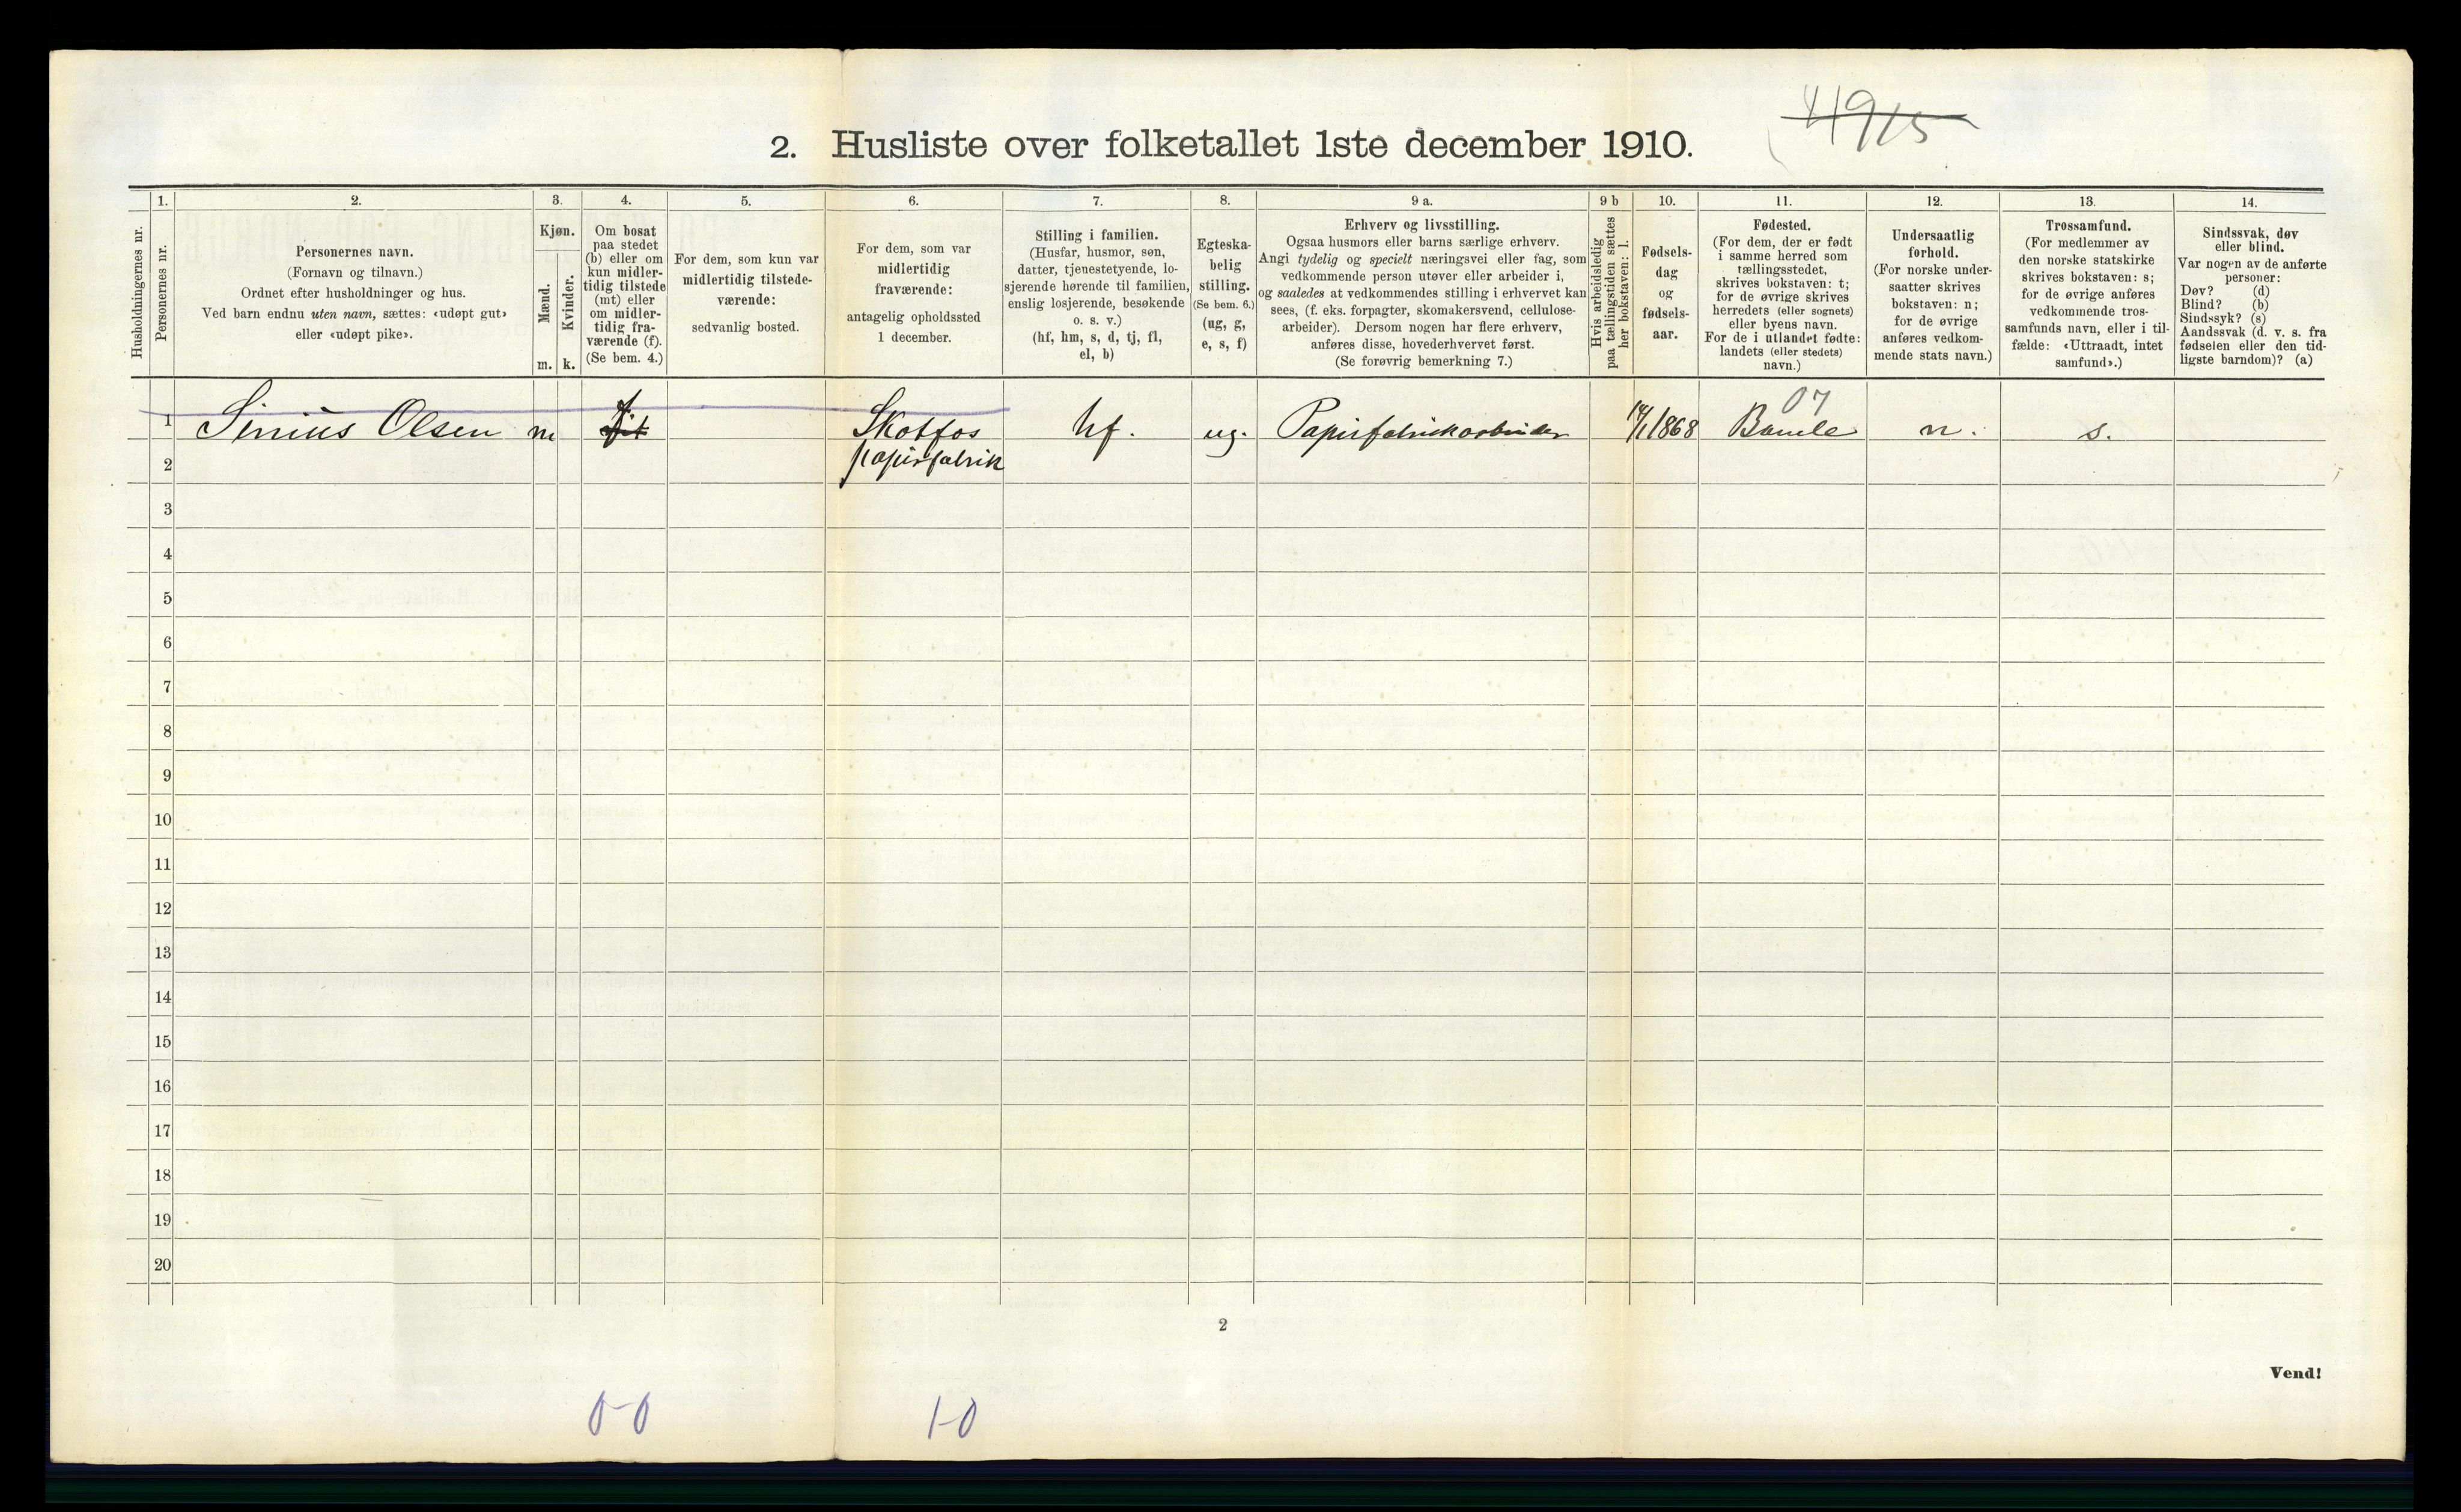 4915
2. Husliste over folketallet 1ste december 1910.
1. 2. 3. 4. 5. 6. 7. 8. 9 a. 9 b 10. 11. 12. 13. 14.
Husholdningernes nr.
Personernes nr.
Personernes navn.
(Fornavn og tilnavn.)
Ordnet efter husholdninger og hus.
Ved barn endnu uten navn, sættes: «udøpt gut»
eller «udøpt pike».
Kjøn.
Mænd.
m.
Kvinder.
k.
Om bosat
paa stedet
(b) eller om
kun midler-
tidig tilstede
(mt) eller
om midler-
tidig fra-
værende (f).
(Se bem. 4.)
For dem, som kun var
midlertidig tilstede-
værende:
sedvanlig bosted.
For dem, som var
midlertidig
fraværende:
antagelig opholdssted
1 december.
Stilling i familien.
(Husfar, husmor, søn,
datter, tjenestetyende, lo-
sjerende hørende til familien,
enslig losjerende, besøkende
o. s. v.)
(hf, hm, s, d, tj, fl,
el, b)
Egteska-
belig
stilling.
(Se bem. 6.)
(ug, g,
e, s, f)
Erhverv og livsstilling.
Ogsaa husmors eller barns særlige erhverv.
Angi tydelig og specielt næringsvei eller fag, som
vedkommende person utøver eller arbeider i,
og saaledes at vedkommendes stilling i erhvervet kan
sees, (f. eks. forpagter, skomakersvend, cellulose-
arbeider). Dersom nogen har flere erhverv,
anføres disse, hovederhvervet først.
(Se forøvrig bemerkning 7.)
Hvis arbeidsledig
paa tællingstiden sættes
her bokstaven: l.
Fødsels-
dag
og
fødsels-
aar.
Fødested.
(For dem, der er født
i samme herred som
tællingsstedet,
skrives bokstaven: t;
for de øvrige skrives
herredets (eller sognets)
eller byens navn.
For de i utlandet fødte:
landets (eller stedets)
navn.)
Undersaatlig
forhold.
(For norske under-
saatter skrives
bokstaven: n;
for de øvrige
anføres vedkom-
mende stats navn.)
Trossamfund.
(For medlemmer av
den norske statskirke
skrives bokstaven: s;
for de øvrige anføres
vedkommende tros-
samfunds navn, eller i til-
fælde: «Uttraadt, intet
samfund».)
Sindssvak, døv
eller blind.
Var nogen av de anførte
personer:
Døv? (d)
Blind? (b)
Sindssyk? (s)
Aandssvak (d. v. s. fra
fødselen eller den tid-
ligste barndom)? (a)
07
1 Sinius Olsen m f Skotfos hf. ug. Papirfabrikarbeider 14/1 1868 Bamle n. s.
2 papirfabrik
3
4
5
6
7
8
9
10
11
12
13
14
15
16
17
18
19
20
2
Vend!
0-0 1-0